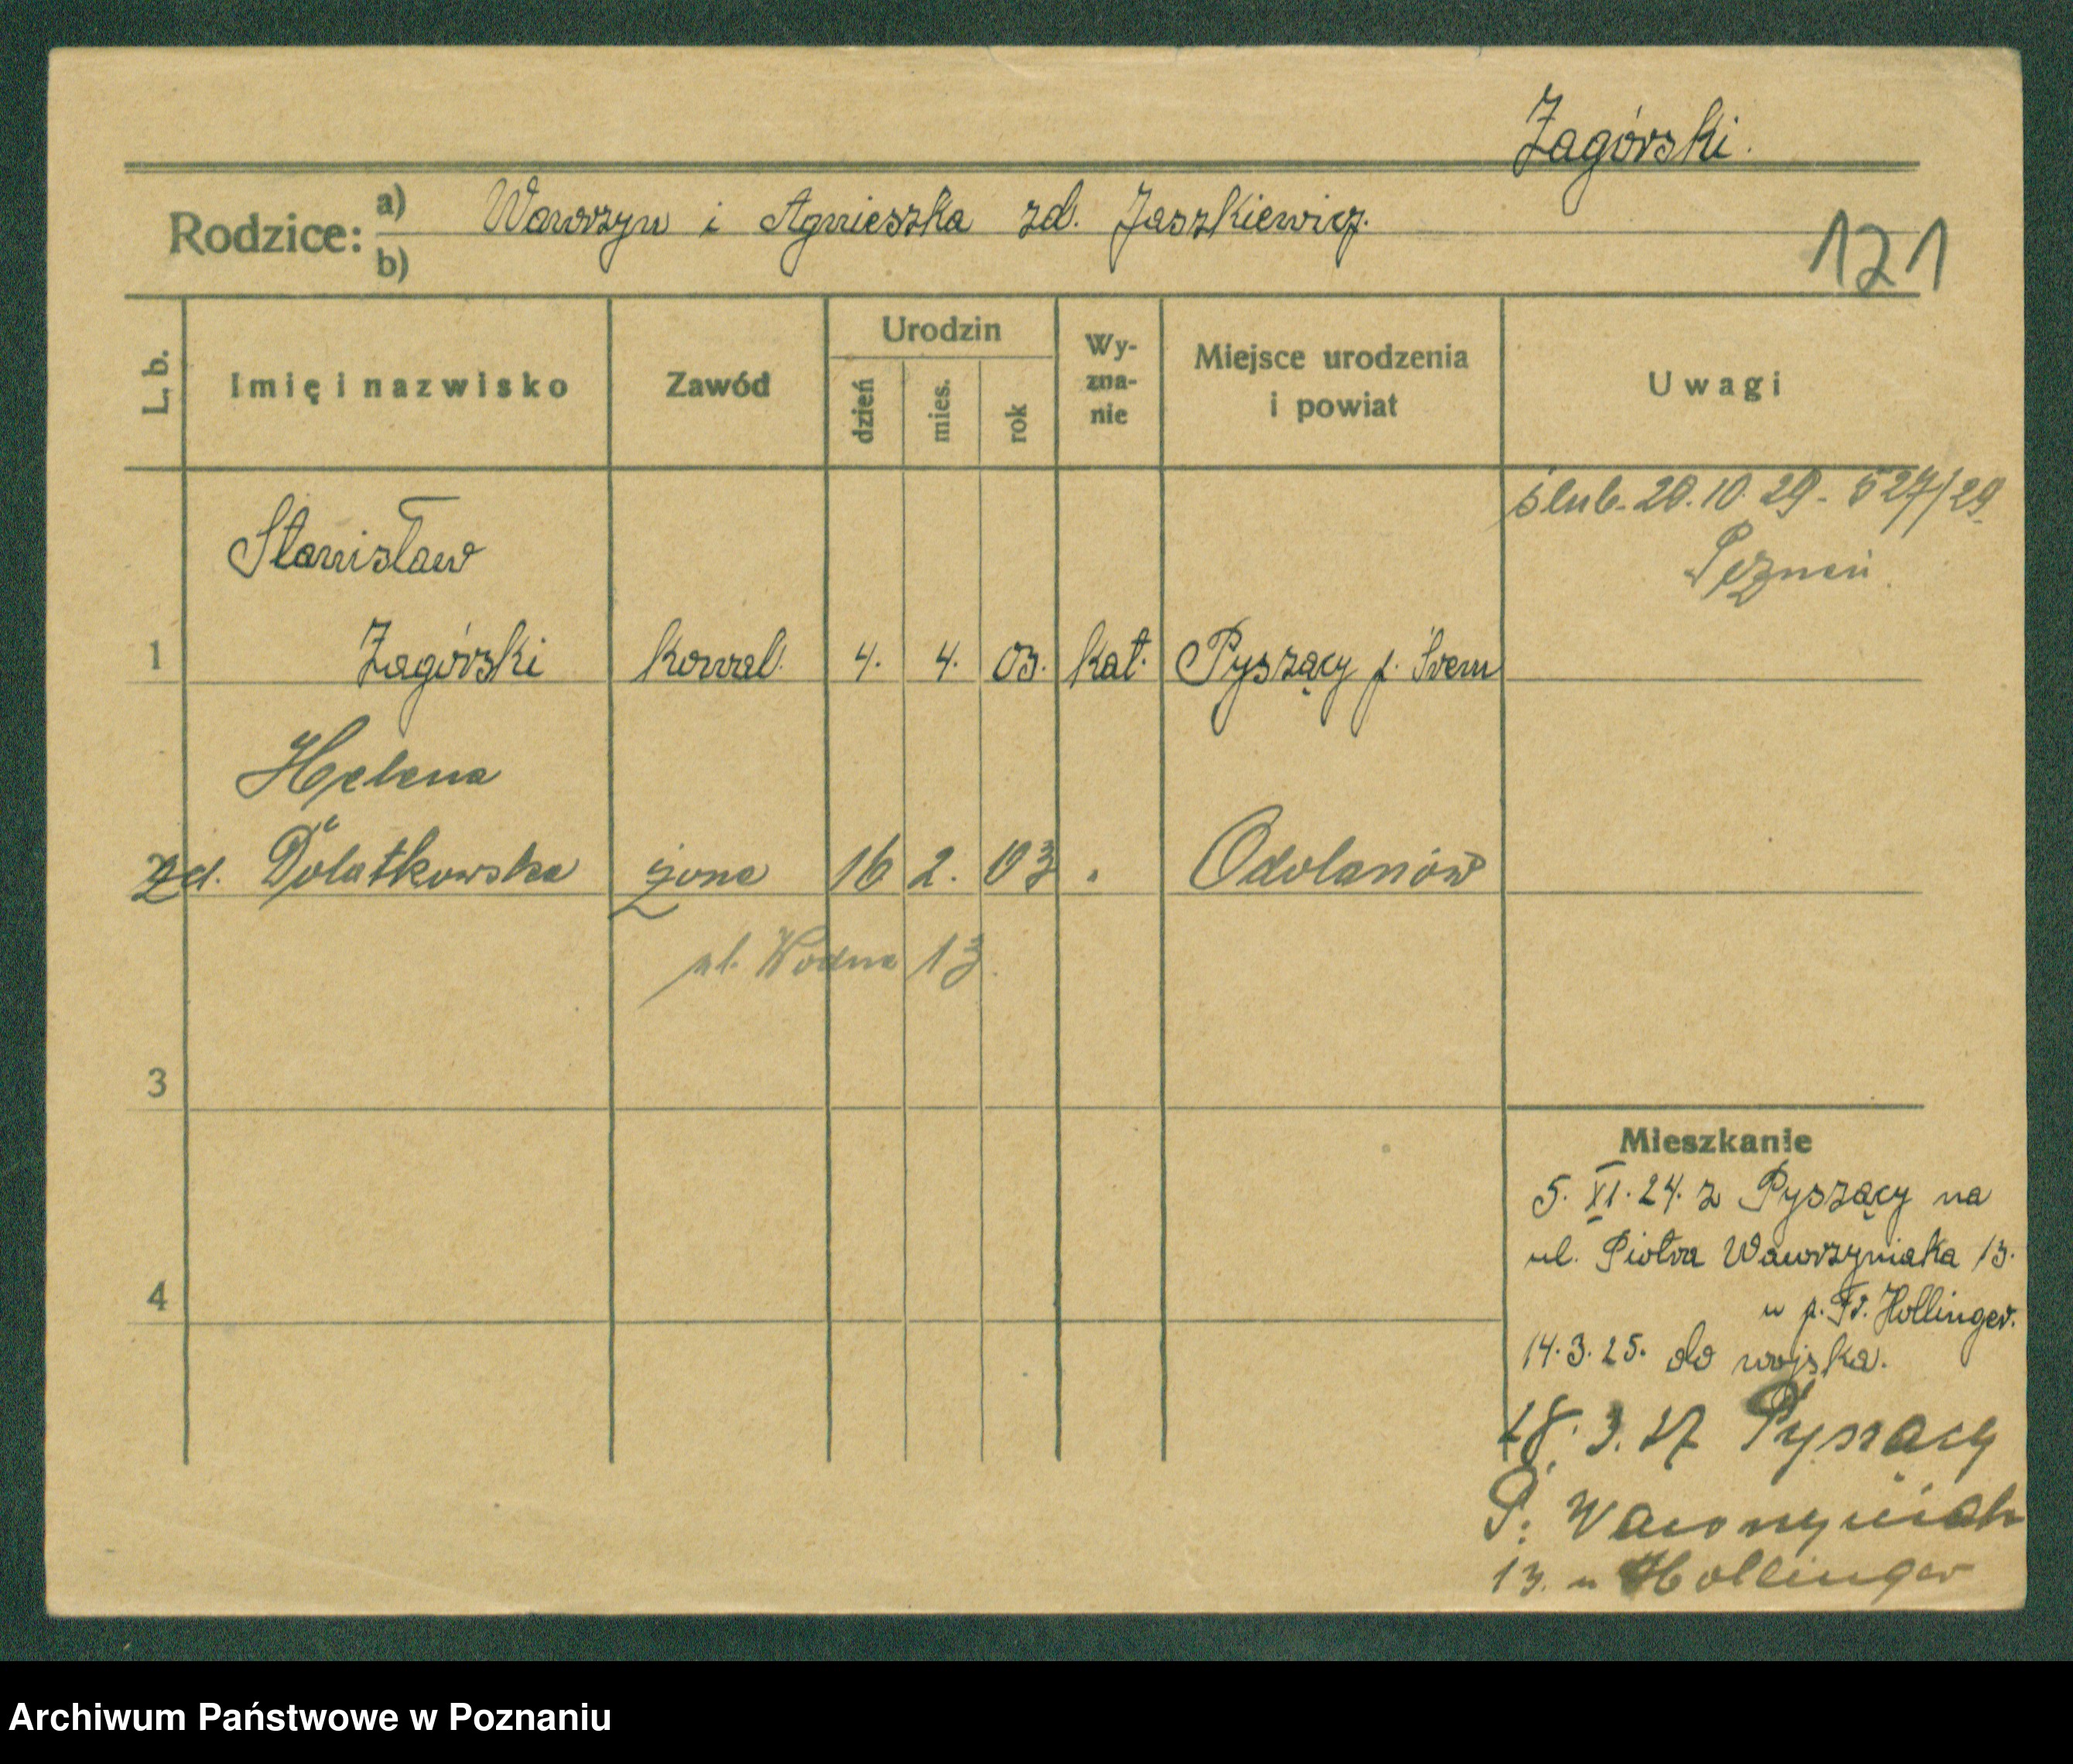 Zagórski.
Rodzice: a) Wawrzyn i Agnieszka zd. Jaszkiewicz.
b)
121
L. b. Imię i nazwisko Zawód Urodzin dzień mies. rok Wy-zna-nie Miejsce urodzenia i powiat Uwagi
ślub. 20.10.29. 527/29
Poznań.
Stanisław
1 Zagórski kowal. 4. 4. 03. kat. Pyszący p. Śrem
Helena
zd. Dolatkowska żona 16 2. 03 " Odolanów
ul. Wodna 13.
3
Mieszkanie
5. XI. 24. z Pyszący na
ul. Piotra Wawrzyniaka 13.
4
u p. Fr. Hollinger.
14.3.25. do wojska.
28.3.27 Pyszący
P. Wawrzyniak
13. u Hollinger
Archiwum Państwowe w Poznaniu